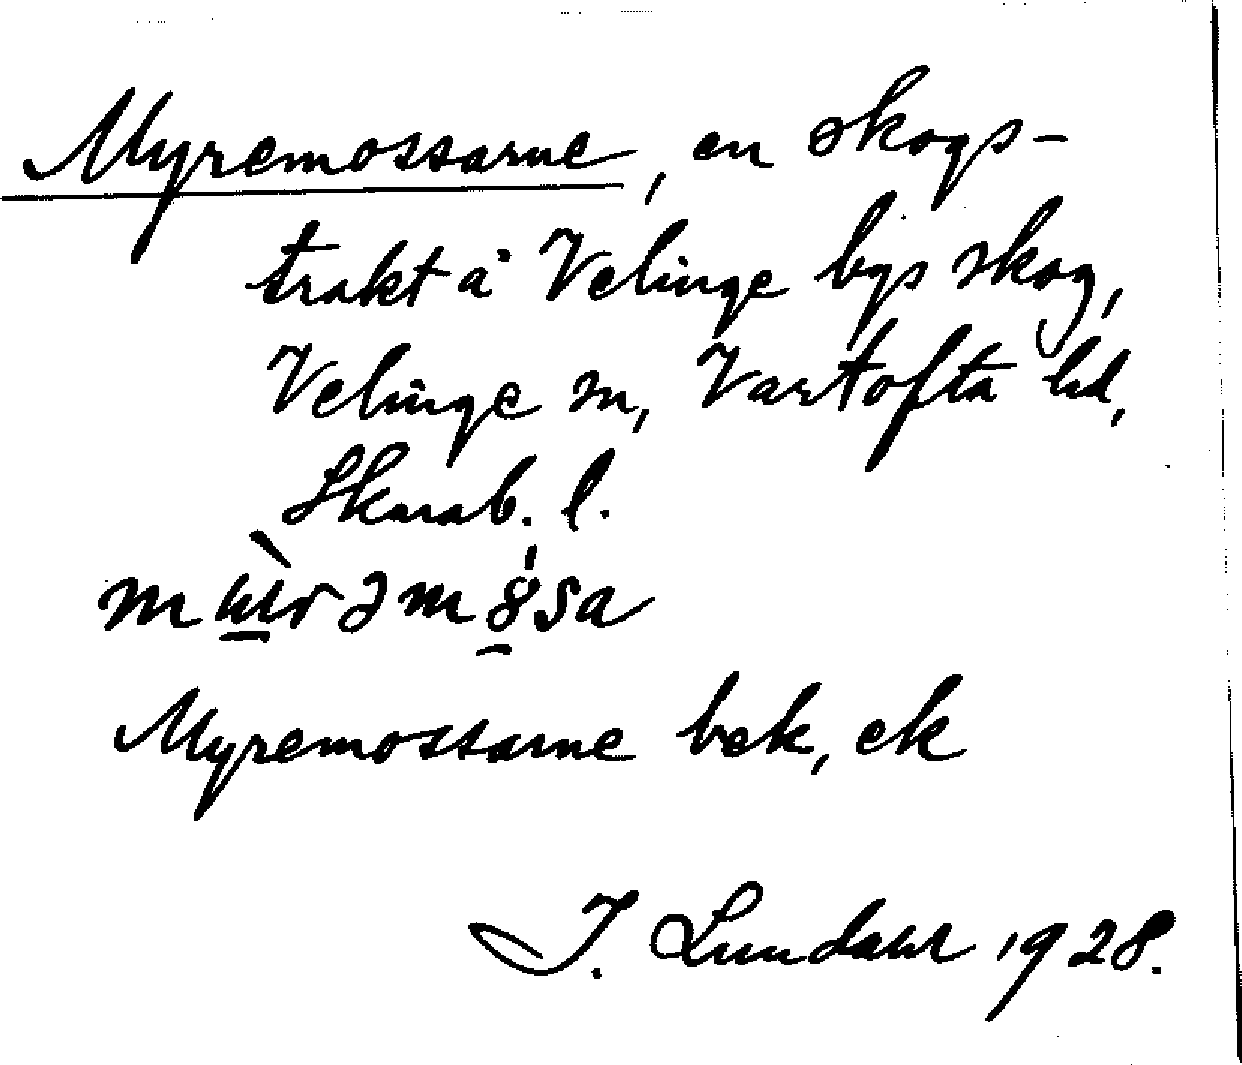 Myremossarne, en skogs-
trakt å Velinge bys skog,
Velinge sn, Vartofta hd,
Skarab. l.
Myremossarne bek, ek
I. Lundahl 1928.